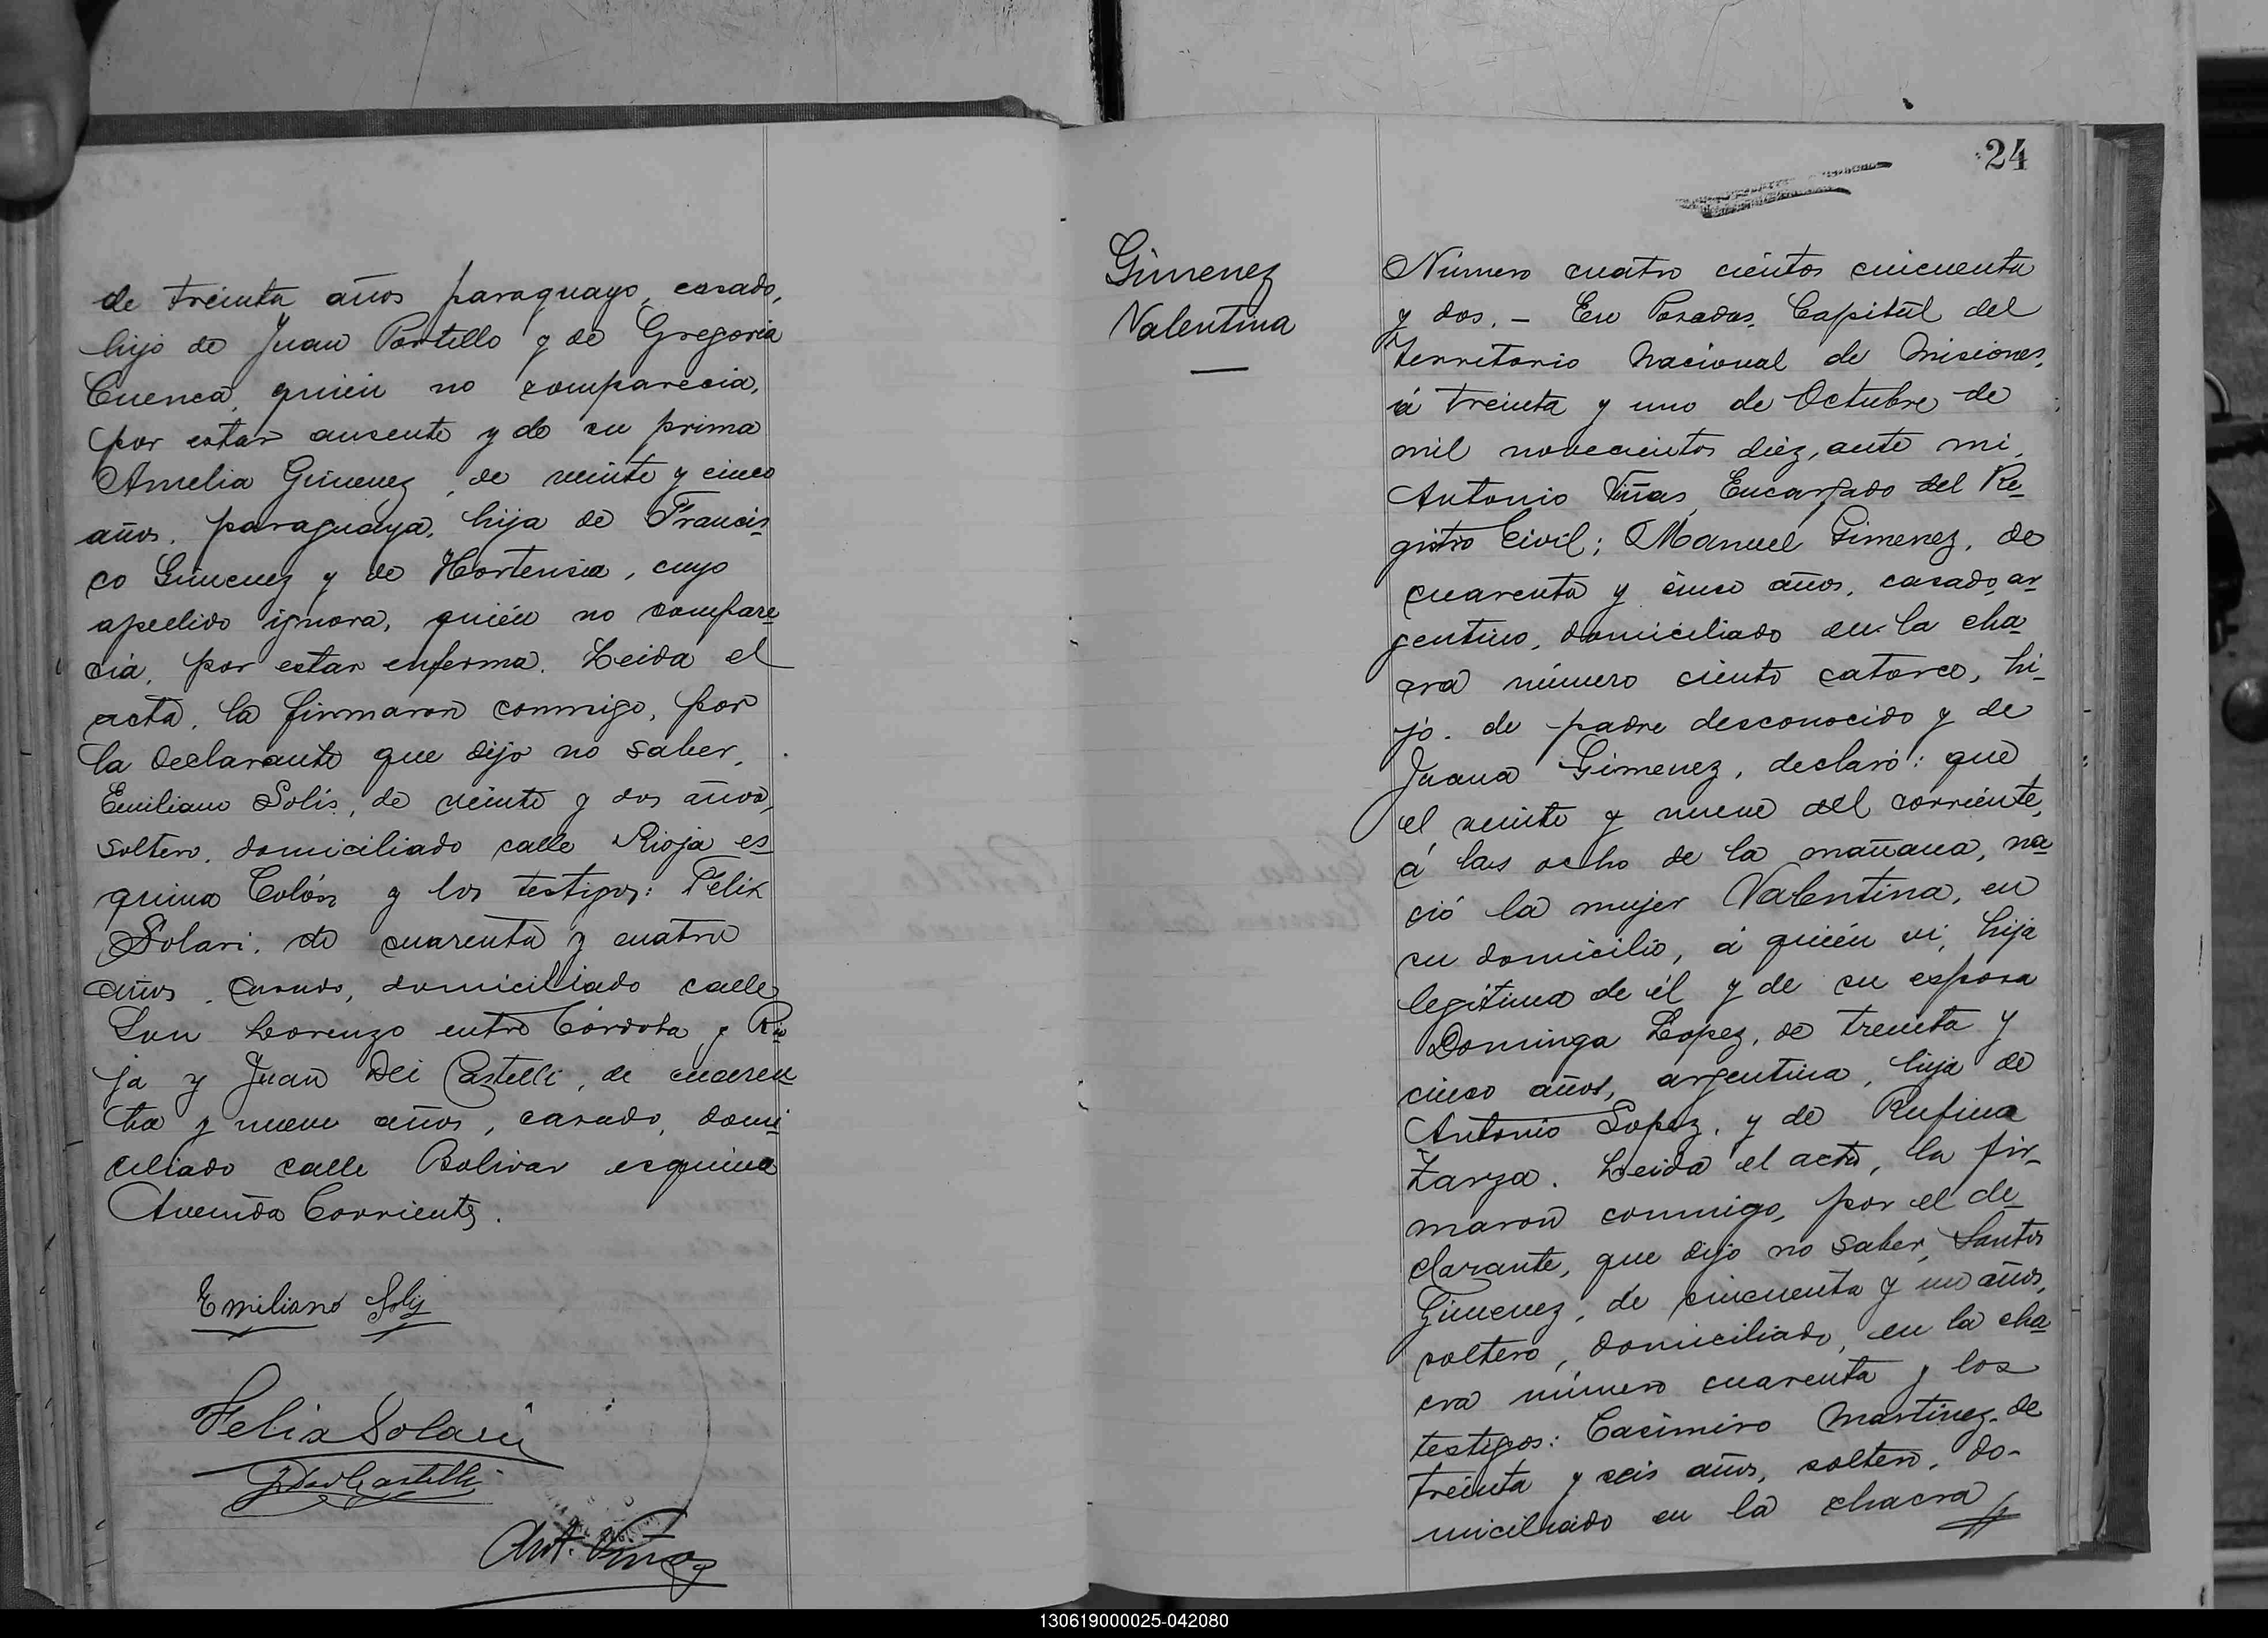 de treinta años paraguayo, casado,
hijo de Juan Portillo y de Gregoria
Cuenca, quién no comparecia,
por estar ausente y de su prima
Amelia Gimenez, de veinte y cinco
años, paraguaya, hija de Francis
co Gimenez y de Hortensia, cuyo
apellido ignora, quién no compare
cia, por estar enferma. Leida el
acta, la firmaron conmigo, por
la declarante que dijo no saber,
Emiliano Solis, de veinte y dos años,
soltero, domiciliado calle Rioja es
quina Colón y los testigos: Felix
Solari, de cuarenta y cuatro
años, casado, domiciliado calle
San Lorenzo entre Córdoba y Rio
ja y Juan Dei Castelli, de cuaren
ta y nueve años, casado, domi
ciliado calle Bolivar esquina
Avenida Corrientes.
Emiliano Solis
Felix Solari
J Dei Castelli
Ant. Viñas
24
Gimenez
Valentina
Número cuatro cientos cincuenta
y dos. - En Posadas, Capitál del
Territorio Nacional de Misiones,
á treinta y uno de Octubre de
mil novecientos diéz, ante mi,
Antonio Viñas, Encargado del Re
gistro Civil; Manuel Gimenez, de
cuarenta y cinco años, casado, ar
gentino, domiciliado en la cha
cra número ciento catorce, hi-
jo de padre desconocido y de
Juana Gimenez, declaró: que
el veinte y nueve del corriente,
á las ocho de la mañana, na
ció la mujer Valentina, en
su domicilio, á quién vi, hija
legítima de él y de su esposa
Dominga Lopez, de treinta y
cinco años, argentina, hija de
Antonio Lopez, y de Rufina
Zarza. Leida el acta, la fir-
maron conmigo, por el de
clarante, que dijo no saber, Santos
Gimenez, de cincuenta y un años,
soltero, domiciliado, en la cha
cra número cuarenta y los
testigos: Casimiro Martinez, de
treinta y seis años, soltero, do-
miciliado en la chacra
130619000025-042080